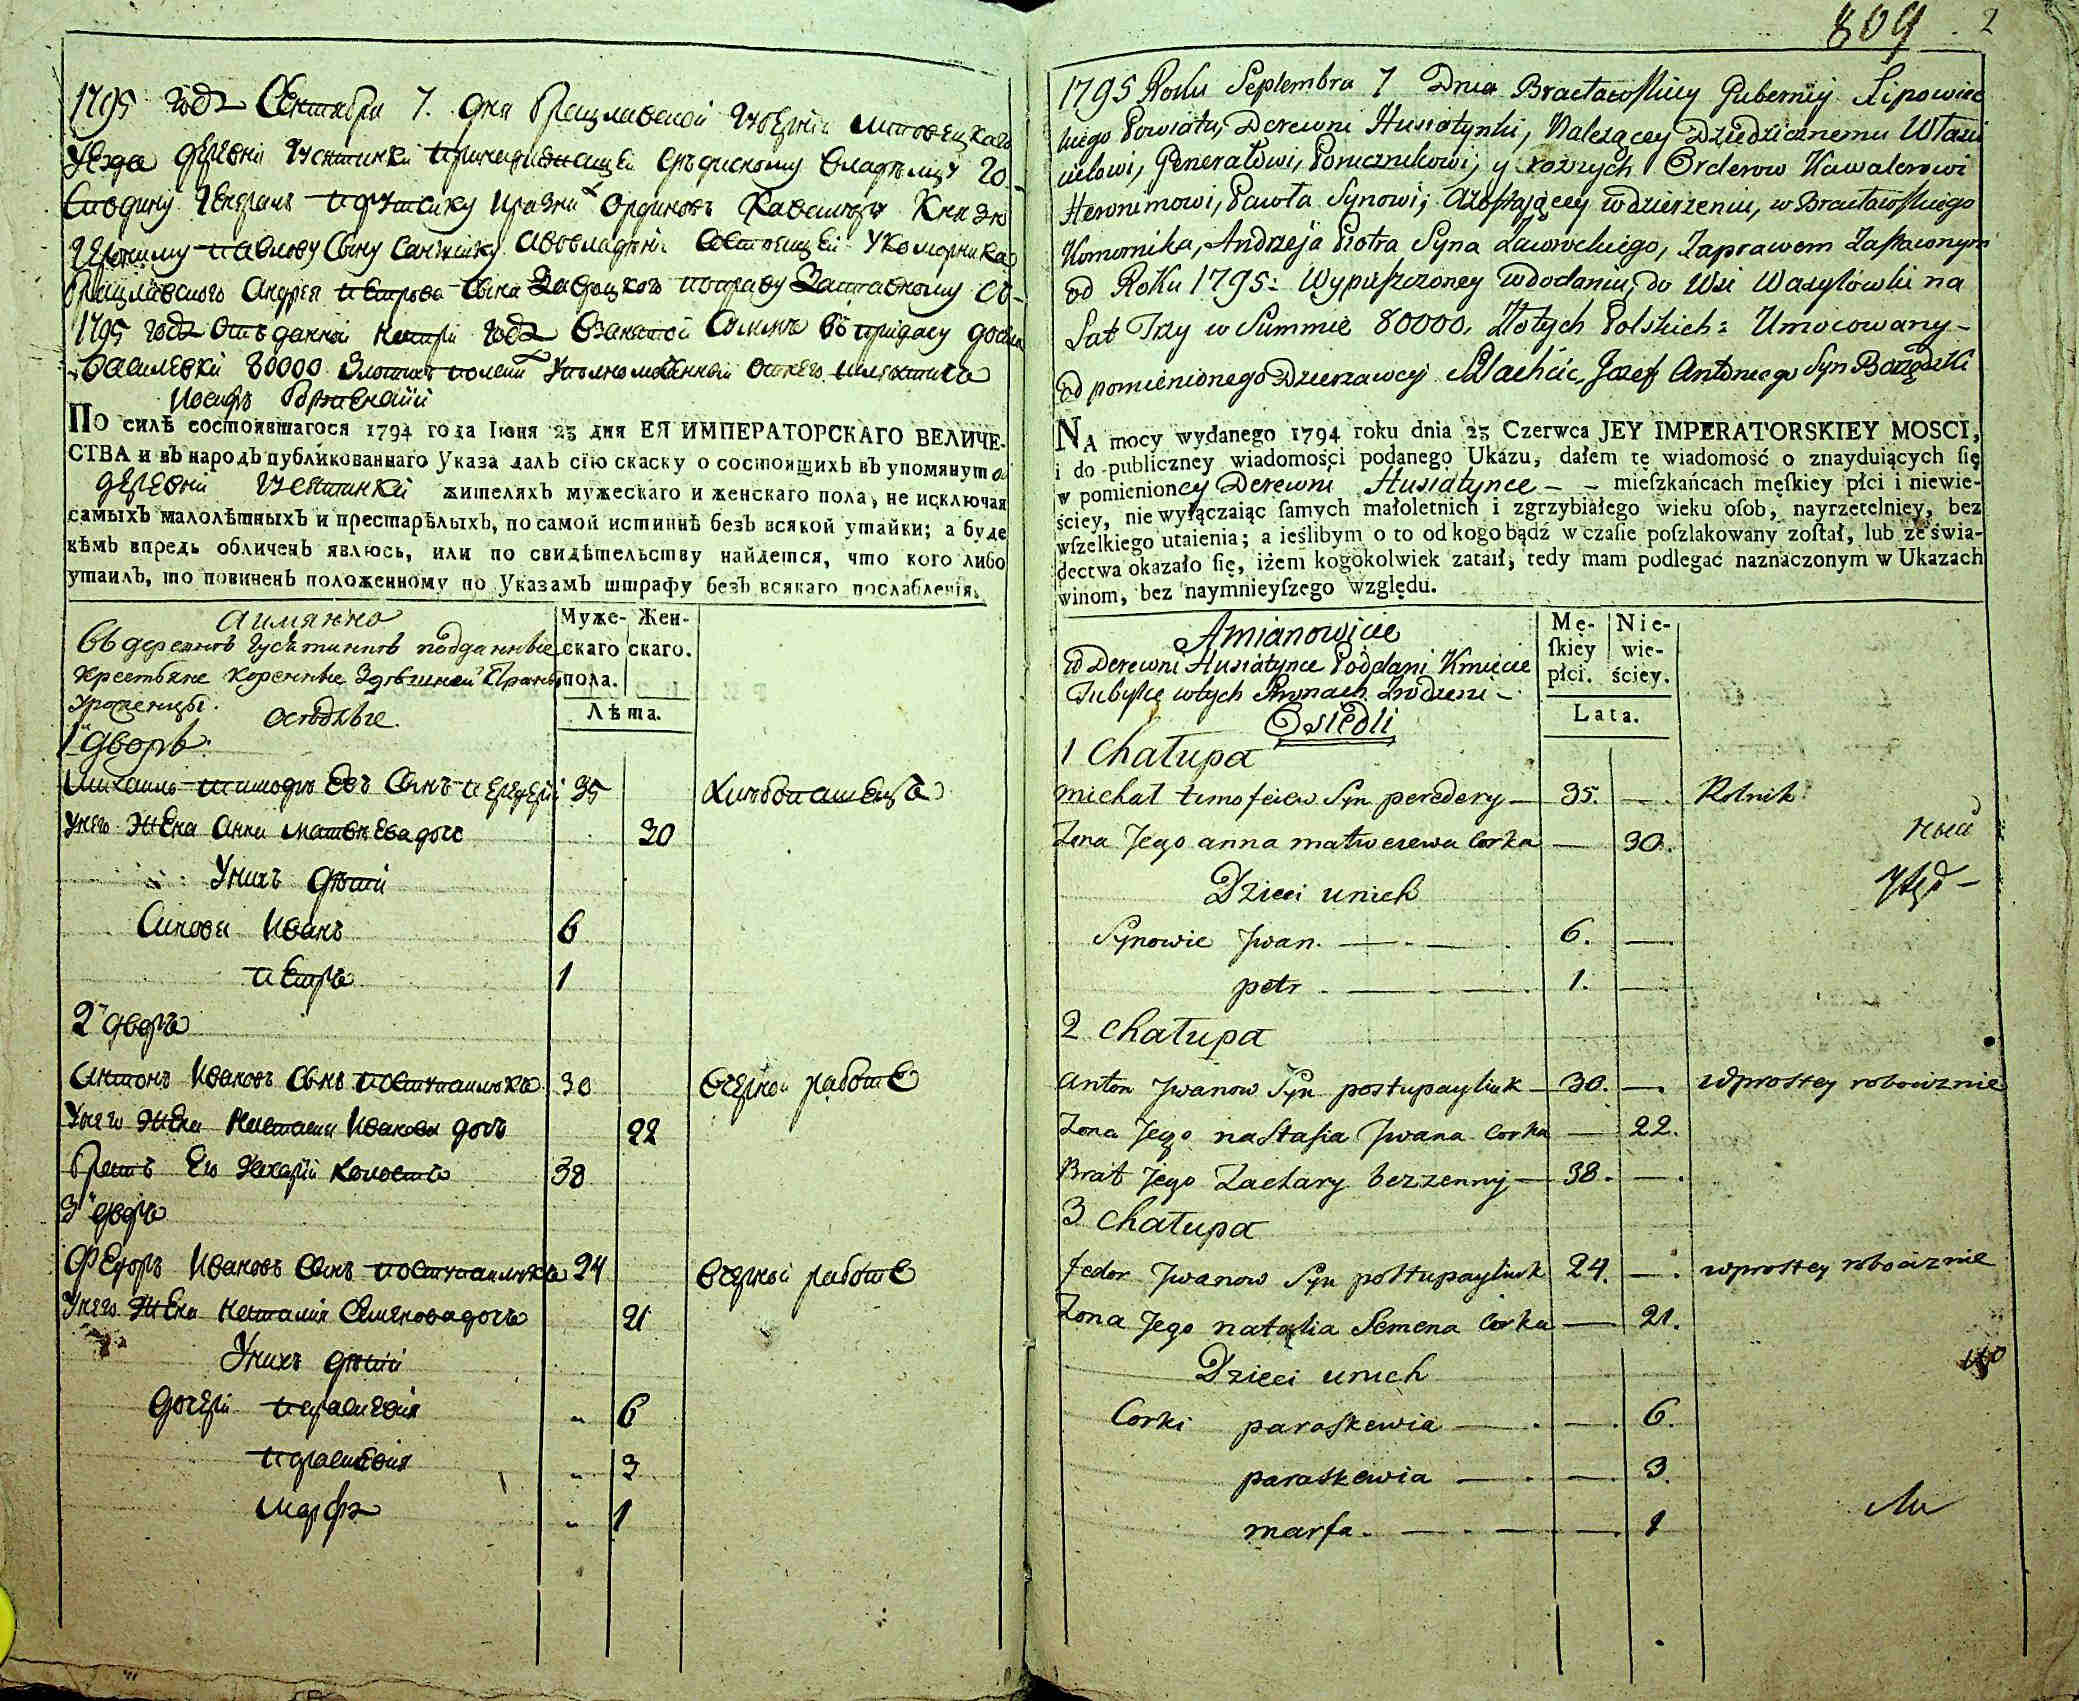 1795 годъ Сентября 7. дня Брацлавской Губерніи Липовецкаго
Уезда деревни Гусятинки принадлежащей дедискому владельцу Го-
сподину Генералъ Порутчику и разныхъ Ординовъ Кавалеру Князю
Герониму Павлову сыну Сангушку а во владѣніи состоящей у Коморника
Брацлавского Андрея Петрова сына Завроцкого по праву Заставному съ
1795 года
Василевки 80000 Злотыхъ полскихъ Уполномоченный отъ него шляхтичъ
Иосифъ
ПО силѣ состоявшагося 1794 года Іюня 23 дня ЕЯ ИМПЕРАТОРСКАГО ВЕЛИЧЕ-
СТВА и въ народъ публикованнаго Указа далъ сію скаску о состоящихъ въ упомянутой
деревни Гусятинки жителяхъ мужескаго и женскаго пола, не исключая
самыхъ малолѣтныхъ и престарѣлыхъ, по самой истиннѣ безъ всякой утайки; а буде
кѣмъ впредь обличенъ явлюсь, или по свидѣтельству найдется, что кого либо
утаилъ, то повиненъ положенному по Указамъ штрафу безъ всякаго послабленія.
а имянно
Въ деревнѣ Гусятинкѣ подданные
крестьяне коренные здѣшней страны
уроженцы.
оседлые
Муже- Жен-
скаго скаго.
пола.
Лѣта.
1й дворъ.
Михайло Тимофѣевъ сынъ Передерій 35 хлѣбопашецъ
У него жена Анна Матвеева дочь 30
У нихъ дети
Синови Иванъ 6
Петръ 1
2й дворъ
Антонъ Ивановъ сынъ Поступайлюкъ 30 в черной работе
У него жена Настасия Иванова дочь 22
Братъ его Захарій холостъ 38
3й дворъ
Федоръ Ивановъ сынъ Поступайлюкъ 24 в черной работе
У него жена Наталия Семенова дочь 21
У нихъ дети
дочери Параскевия 6
Параскевия 3
Марфа 1
809 2
1795 Roku Septembra 7 Dnia Bracławskiey Gubernij Lipowiec
kiego Powiatu, Derewni Husiatynki, Należącey Dziedzicznemu Właści
cielowi, Generałowi, Porucznikowi, y różnych Orderow Kawalerowi
Heronimowi, Pawła Synowi; Zostającey w dzierżeniu, w Bracławskiego
Komornika, Andrzeja Piotra Syna Zawrockiego, Zaprawem Zastawnym
od Roku 1795: Wypuszczoney w dodaniu, do Wsi Wasylówki na
Lat Trzy w Summie 80000, Złotych Polskich: Umocowany
od pomienionego Dzierzawcy Szlachcic Jozef Antoniego Syn
NA mocy wydanego 1794 roku dnia 23 Czerwca JEY IMPERATORSKIEY MOSCI,
i do publiczney wiadomości podanego Ukazu, dałem tę wiadomość o znayduiących ſię
w pomienioncy Derewni Husiatynce - - mieſzkańcach męſkiey płci i niewie-
ściey, nie wyłączaiąc ſamych małoletnich i zgrzybiałego wieku oſob, nayrzetelniey, bez
wſzelkiego utaienia; a ieślibym o to od kogo bądź w czaſie poſzlakowany zoſtał, lub ze świa-
dectwa okazało ſię, iżem kogokolwiek zataił, tedy mam podlegać naznaczonym w Ukazach
winom, bez naymnieyſzego względu.
Amianowicie
w Derewni Husiatynce Poddani Kmiecie
Tubylcę w tych Stronach zrodzeni
Osiedli
Mę- Nie-
ſkiey wie-
płci. ściey.
Lata.
1 Chałupa
michał timofeiew Syn peredery 35. Rolnik
Zona Jego anna matweiewa Corka 30.
Dzieci unich
Synowie Jwan 6.
petr 1.
2 Chałupa
anton Jwanow Syn postupayliuk 30. w prostey robociznie
Zona Jego nastasia Jwana Corka 22.
Brat Jego Zachary bezzenny 38.
3 Chałupa
fedor Jwanow Syn postupayliuk 24. w prostey robociznie
Zona Jego natalia Semena Corka 21.
Dzieci unich
Corki paraskewia 6.
paraskewia 3.
marfa. 1